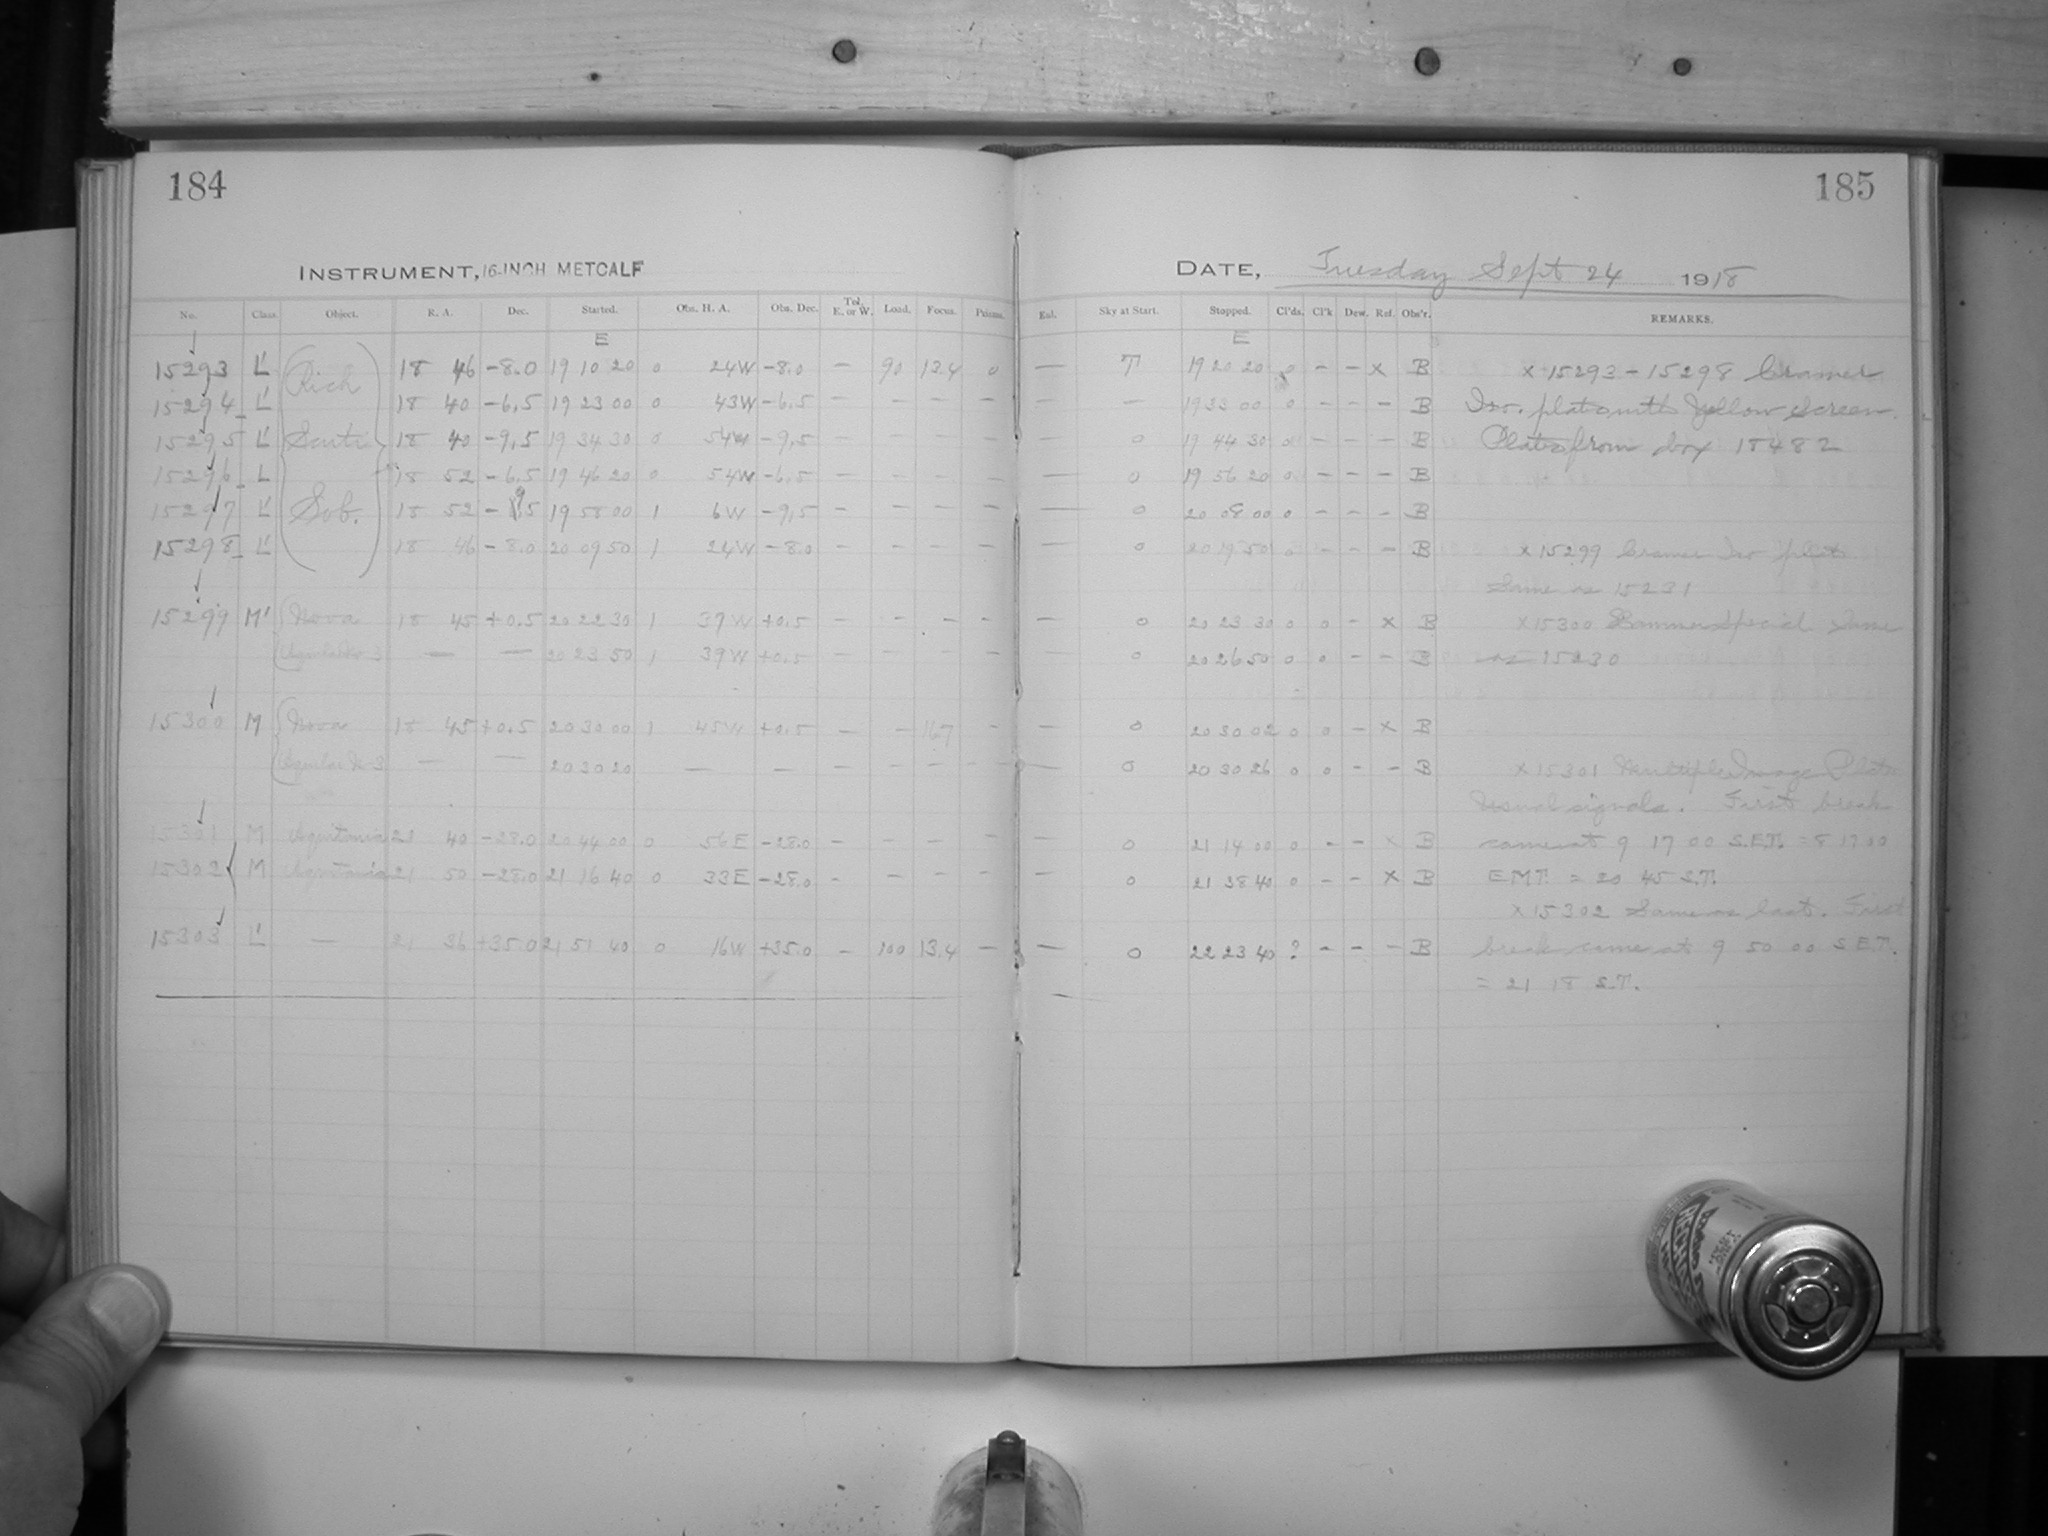 184
185
INSTRUMENT, 16-INCH METCALF
DATE, Tuesday Sept 24 1918
No. Class. Object. R. A. Dec. Started. Obs. H. A. Obs. Dec. Tel. E. or W. Load. Focus. Prisms. Exd. Sky at Start. Stopped. Cl'ds. Cl'k Dew. Ref. Obs'r. REMARKS.
E E
15293 L' Rich 18 46 -8.0 19 10 20 0 24W -8.0 - 90 13.4 0 — T 19 20 20 0 - - x B x 15293-15298 Cramer
15294 L' 18 40 -6.5 19 23 00 0 43W -6.5 - - - - — — 19 33 00 0 - - - B Iso. plates with Yellow Screen.
15295 L' Scuti 18 40 -9.5 19 34 30 0 54W -9.5 - - - - — 0 19 44 30 0 - - - B Plates from box 18482
15296 L 18 52 -6.5 19 46 20 0 54W -6.5 - - - - — 0 19 56 20 0 - - - B
15297 L' Sob. 18 52 -9.5 19 58 00 1 6W -9.5 - - - - — 0 20 08 00 0 - - - B
15298 L' 18 46 -8.0 20 09 50 1 24W -8.0 - - - - — 0 20 19 50 0 - - - B x 15299 Cramer Iso plate
same as 15231
15299 M' Nova 18 45 +0.5 20 22 30 1 37W +0.5 - - - - — 0 20 23 30 0 0 - x B x 15300 Hammer special same
Aquilae No 3 — — 20 23 50 1 39W +0.5 - - - - — 0 20 26 50 0 0 - - B as 15230
15300 M Nova 18 45 +0.5 20 30 00 1 45W +0.5 - - 167 - — 0 20 30 02 0 0 - x B
Aquilae No 3 — — 20 30 20 — — - - - - — 0 20 30 26 0 0 - - B x 15301 Multiple Image Plate
Usual signals. First break
15301 M Aquitania 21 40 -28.0 20 44 00 0 56E -28.0 - - - - — 0 21 14 00 0 - - x B came at 9 17 00 S.E.T. = 8 17 00
15302 M Aquitania 21 50 -28.0 21 16 40 0 33E -28.0 - - - - — 0 21 38 40 0 - - x B E.M.T. = 20 45 S.T.
x 15302 Same as last. First
15303 L' — 21 36 +35.0 21 51 40 0 16W +35.0 - 100 13.4 - — 0 22 23 40 ? - - - B break came at 9 50 00 S.E.T.
= 21 18 S.T.